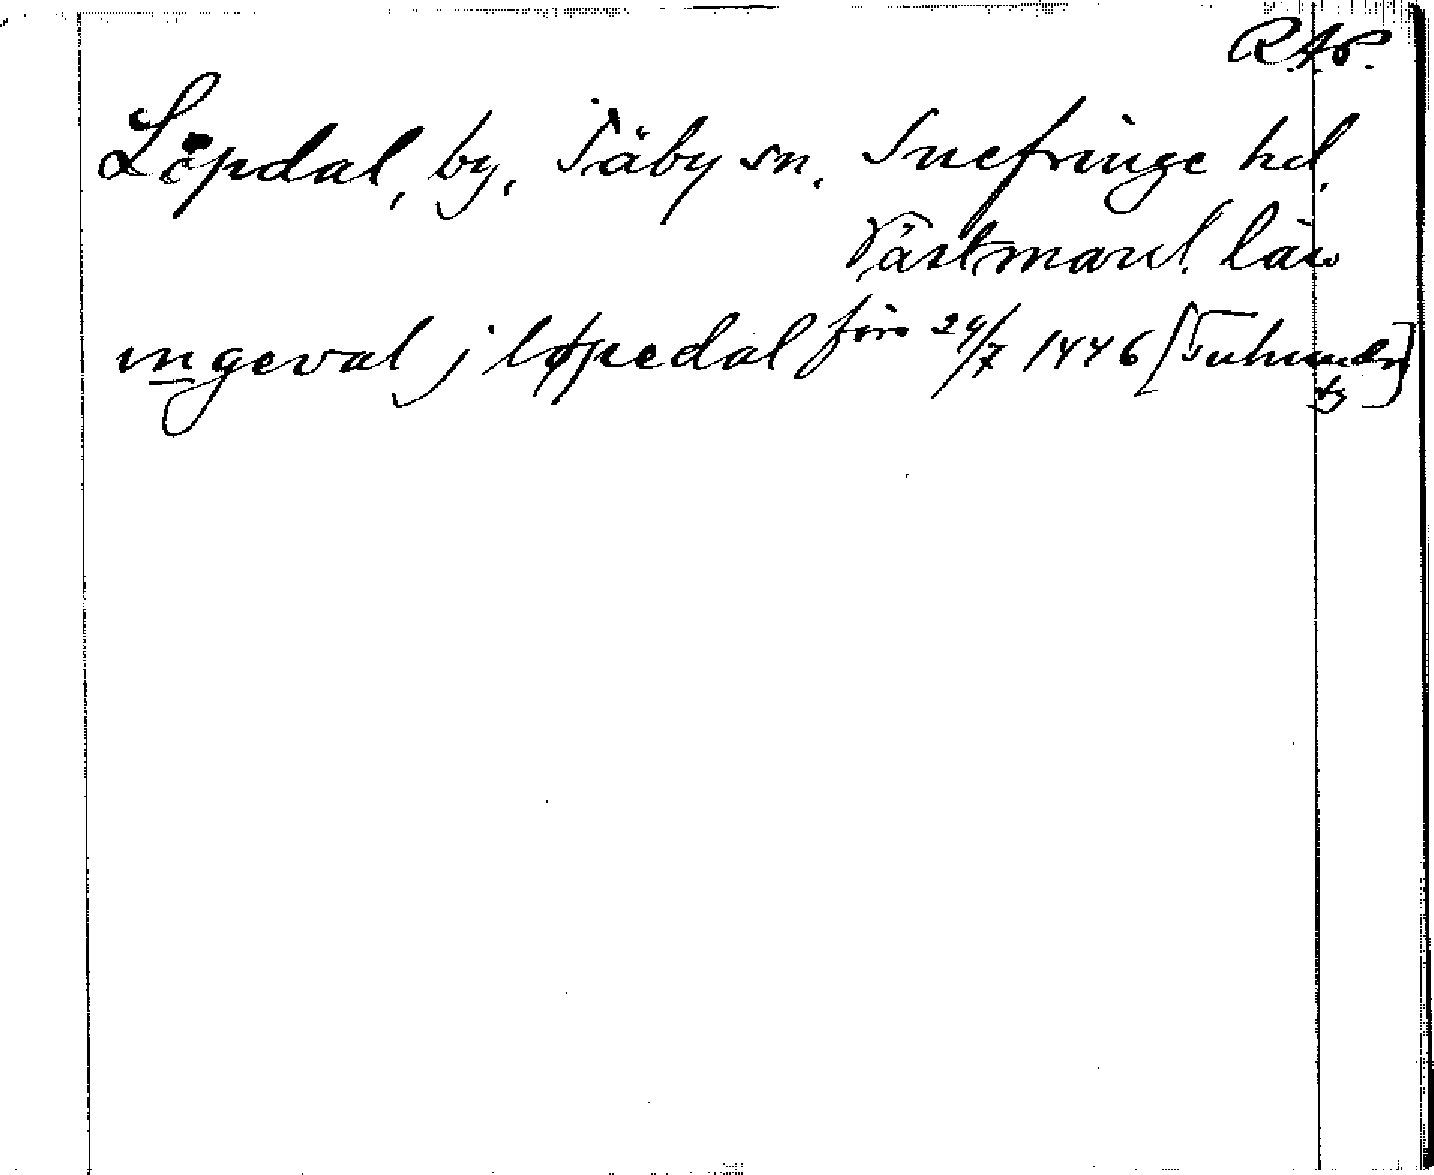 R.A.P.
Löpdal, by, Säby sn. Snefringe hd.
Västmanl. län
ingeval j løpedal före 24/7 1446 [Tuhundra
ty]